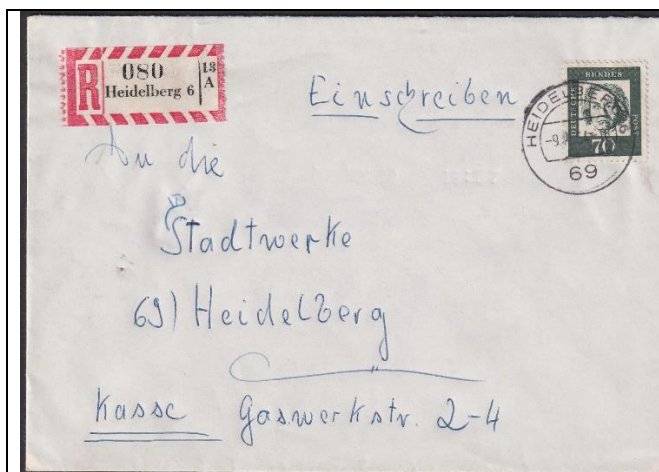 R 080 13 A
Heidelberg 6
Einschreiben
DEUTSCHE BUNDES POST
70
HEIDELBERG
-9.
69
An die
Stadtwerke
69) Heidelberg
Kasse Gaswerkstr. 2-4